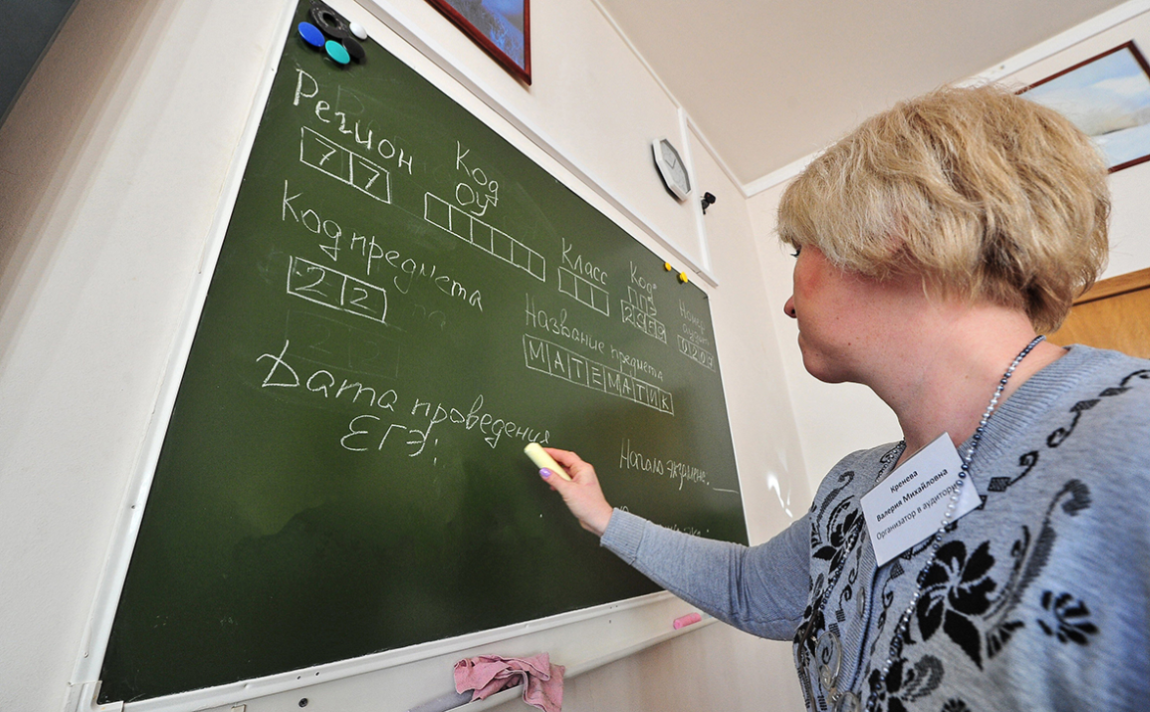 Регион
77
Код
ОУ
Код предмета
22
Класс
Код
ППЭ
Номер
аудит
0207
Название предмета
МАТЕМАТИК
Дата проведения
ЕГЭ:
Начало экзамене:
Кренева
Валерия Михайловна
Организатор в аудитории